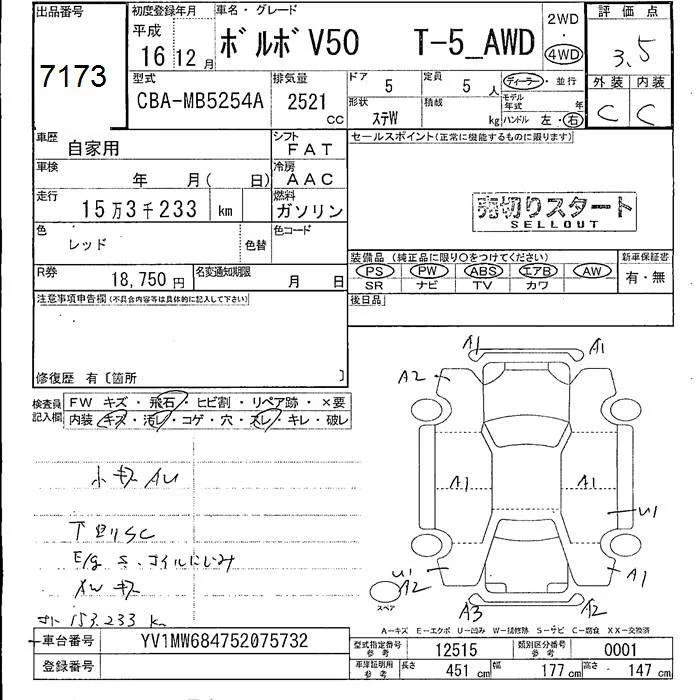 出品番号
7173
初度登録年月
平成
16 12 月
車名・グレード
ボルボV50 T-5_AWD
2WD
・
4WD
評価点
3.5
外装 内装
C C
型式
CBA-MB5254A
排気量
2521
CC
ドア
5
定員
5 人
ディーラー・並行
形状
ステW
積載
kg
モデル年式 年
ハンドル 左・右
車歴
自家用
シフト
FAT
セールスポイント(正常に機能するものに限ります)
車検
年 月( 日)
冷房
AAC
走行
15万3千233 km
燃料
ガソリン
売切りスタート
SELLOUT
色
レッド
色替
色コード
装備品(純正品に限り○をつけてください)
PS PW ABS エアB AW
SR ナビ TV カワ
新車保証書
有・無
R券
18,750 円
名変通知期限
月 日
後日品
注意事項申告欄(不具合内容等は具体的に記入して下さい)
修復歴 有〔箇所 〕
検査員記入欄
FW キズ・飛石・ヒビ割・リペア跡・×要
内装・キズ・汚レ・コゲ・穴・スレ・キレ・破レ
小キズAU
E/g S.コイルにじみ
AWキズ
153.233 km
A1 A1
A2
A1 A1
U1
U1
A2
A1
A3 A2
スペア
A-キズ E-エクボ U-凹み W-補修跡 S-サビ C-腐食 XX-交換済
車台番号
YV1MW684752075732
登録番号
型式指定番号
参考
12515
類別区分番号
参考
0001
車庫証明用
参考
長さ 451 cm 幅 177 cm 高さ 147 cm